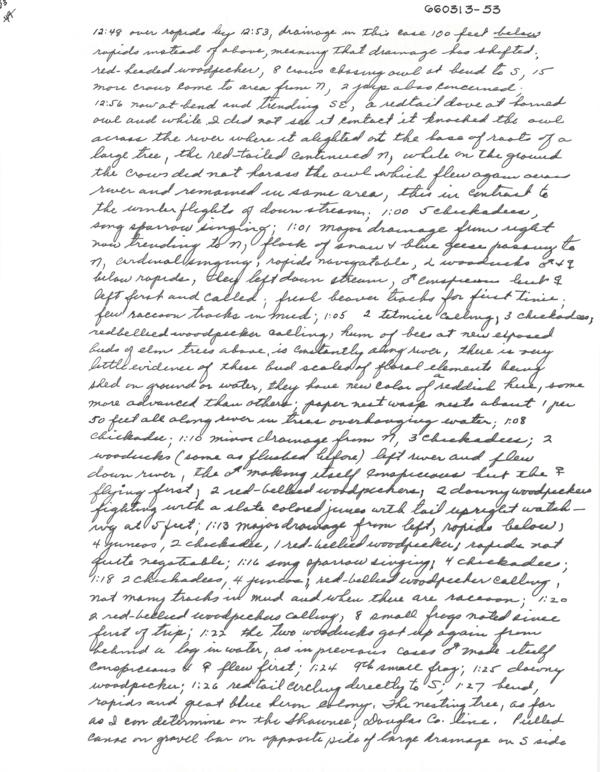 660313-53
12:48 over rapids by 12:53, drainage in this case 100 feet below
rapids instead of above, meaning that drainage has shifted;
red-headed woodpecker, 8 crows chasing owl at bend to S, 15
more crows come to area from N, 2 jays also concerned;
12:56 now at bend and trending SE, a redtail dove at horned
owl and while I did not see it contact it knocked the owl
across the river where it alighted at the base of roots of a
large tree, the red-tailed continued N, while on the ground
the crows did not harass the owl which flew again across
river and remained in same area, this in contrast to
the winter flights of down stream; 1:00 5 chickadees,
song sparrow singing; 1:01 major drainage from right
now trending to N, flock of snow & blue geese passing to
N, cardinal singing, rapids navigatable, 2 woodducks ♂ & ♀
below rapids, they left down stream, ♂ conspicuous but ♀
left first and called; fresh beaver tracks for first time;
few raccoon tracks in mud; 1:05 2 titmice calling, 3 chickadees,
redbellied woodpecker calling, hum of bees at new exposed
buds of elm trees above, is constantly along river, there is very
little evidence of these bud scales of floral elements being
shed on ground or water, they have new color of a reddish hue, some
more advanced than others; paper nest wasp nests about 1 per
50 feet all along river in trees overhanging water; 1:08
chickadee; 1:10 minor drainage from N, 3 chickadees; 2
woodducks (same as flushed before) left river and flew
down river, the ♂ making itself conspicuous but the ♀
flying first; 2 red-bellied woodpeckers, 2 downy woodpeckers
fighting with a slate colored junco with tail upright watch-
ing at 5 feet; 1:13 major drainage from left, rapids below,
4 juncos, 2 chickadee, 1 red-bellied woodpecker, rapids not
quite negotiable; 1:16 song sparrow singing, 4 chickadees;
1:18 2 chickadees, 4 juncos, red-bellied woodpecker calling,
not many tracks in mud and when there are raccoon; 1:20
2 red-bellied woodpeckers calling, 8 small frogs noted since
first of trip; 1:22 the two woodducks got up again from
behind a log in water, as in previous cases ♂ made itself
conspicuous & ♀ flew first; 1:24 9th small frog; 1:25 downy
woodpecker; 1:26 red tail circling directly to S; 1:27 bend,
rapids and great blue heron colony. The nesting tree, as far
as I can determine on the Shawnee, Douglas Co. line. Pulled
canoe on gravel bar on opposite side of large drainage on S side